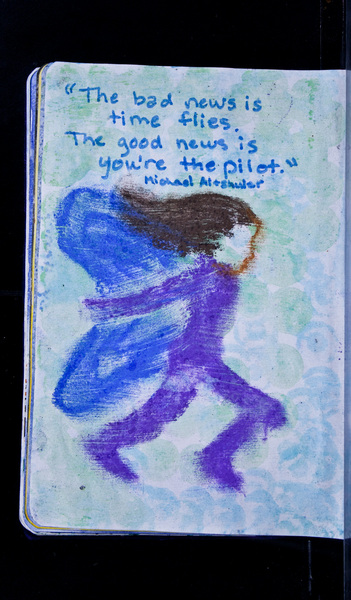 "The bad news is
time flies.
The good news is
you're the pilot."
Michael Altshuler